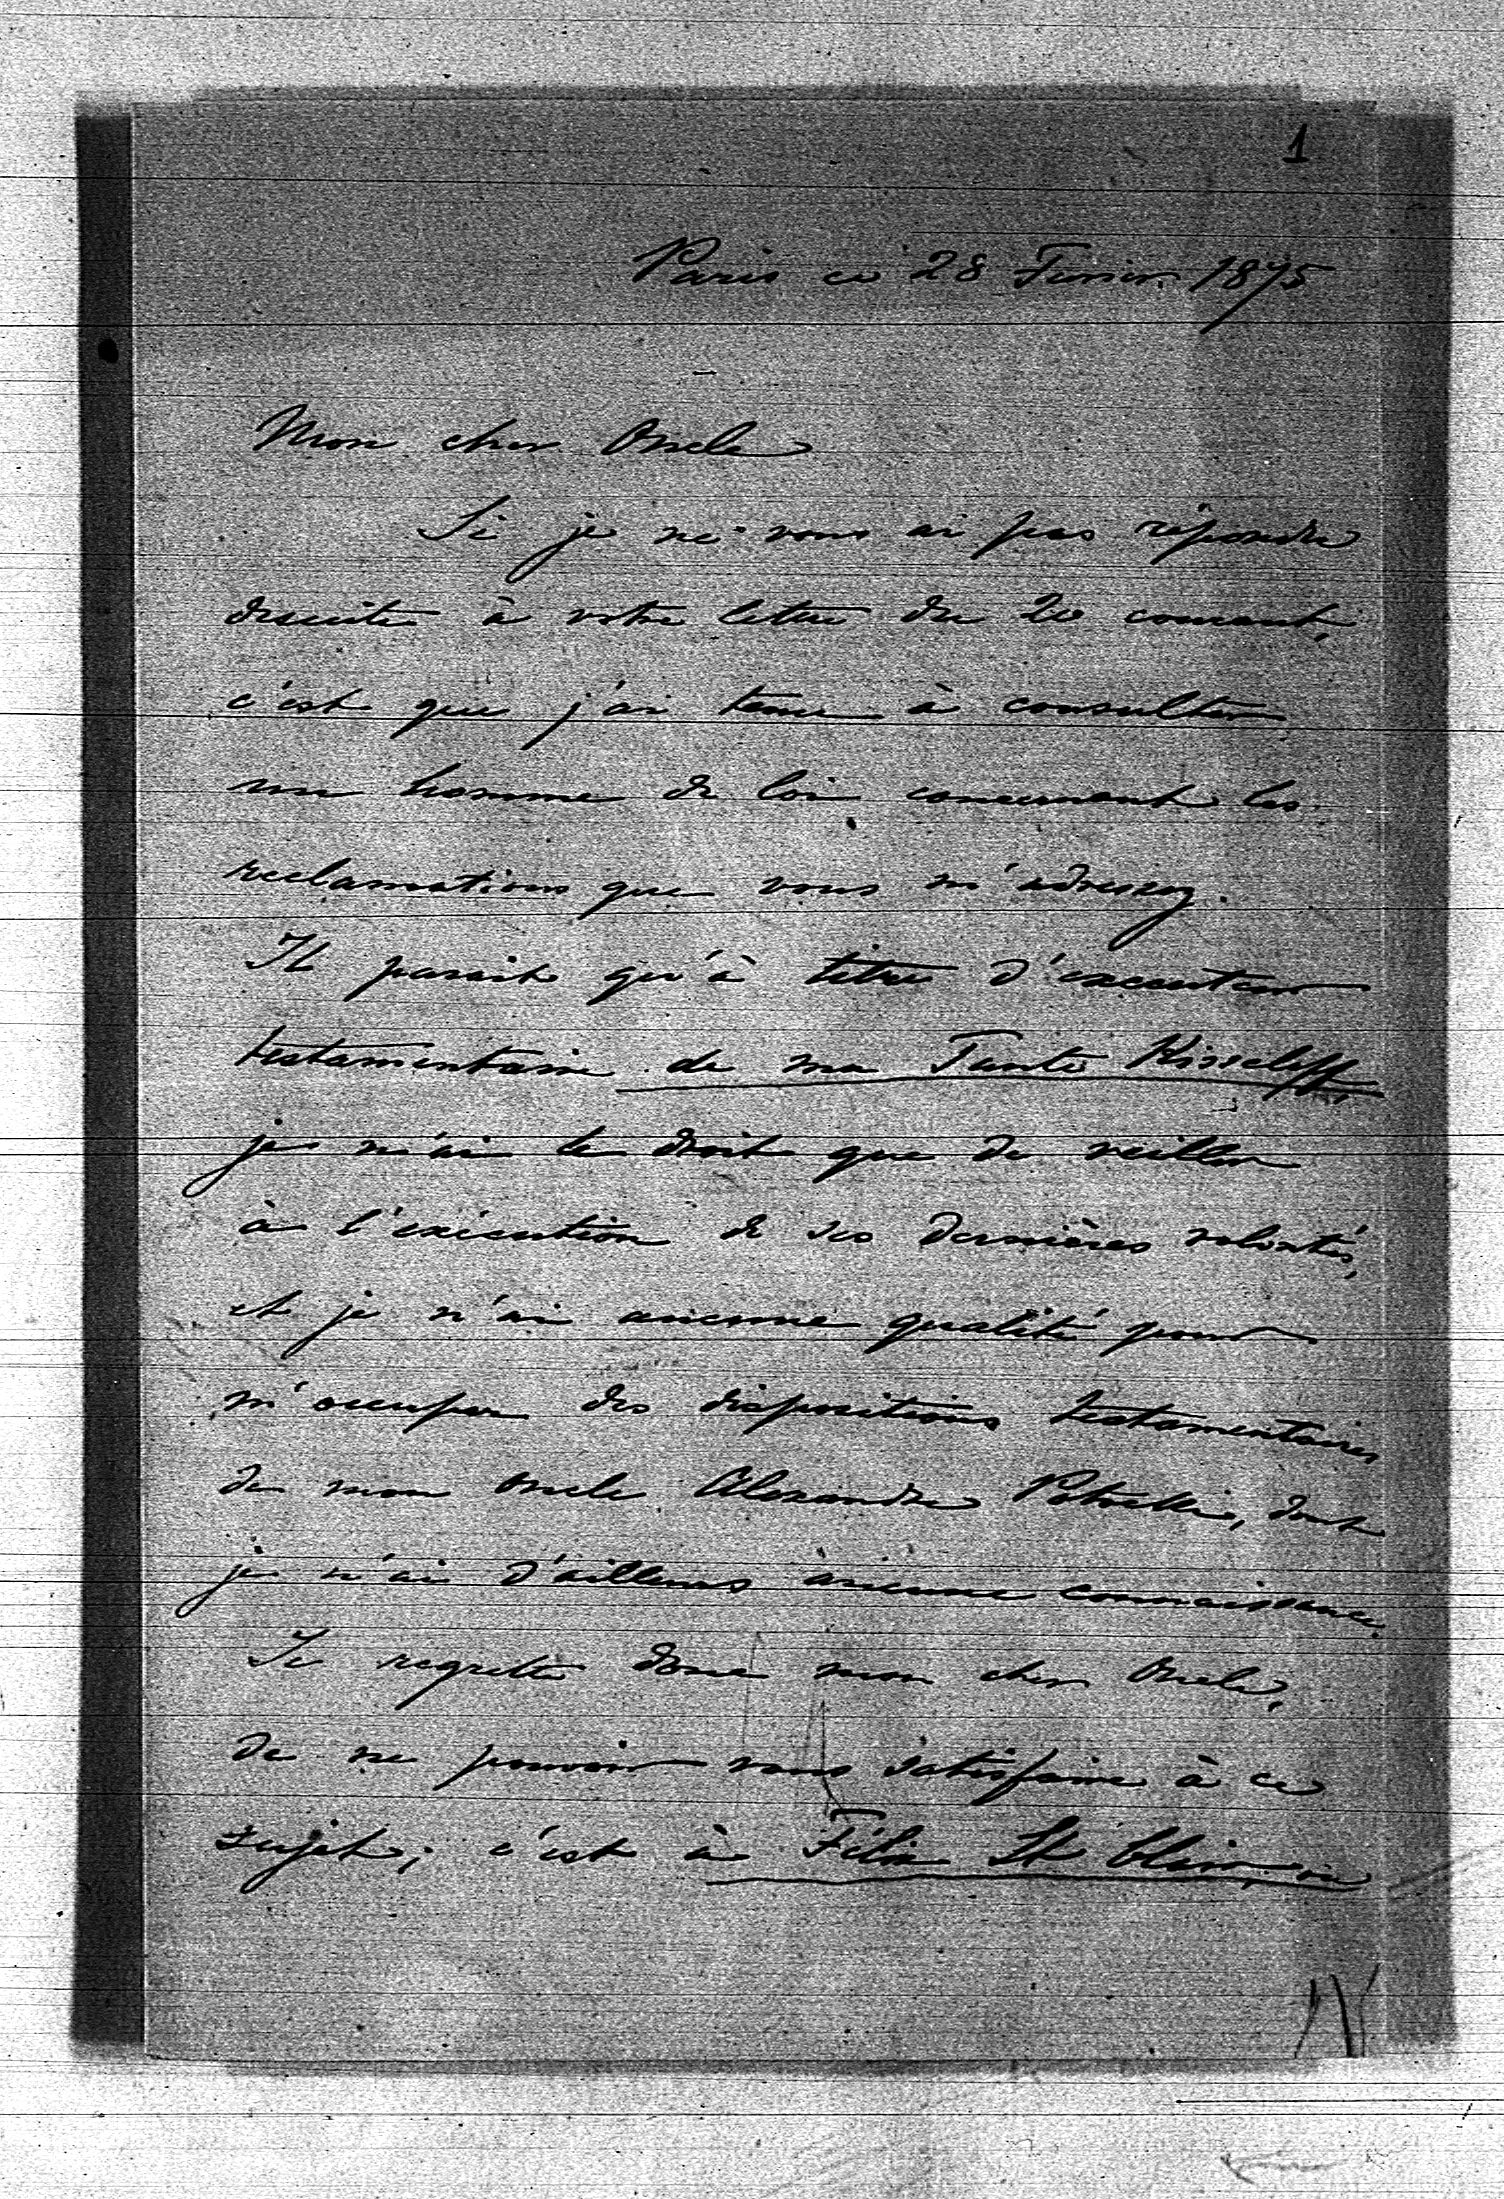 1
Paris ce 28 Fevrier 1875
Mon cher Oncle
Si je ne vous ai pas répondu
desuite à votre lettre du 20 courant,
c'est que j'ai tenu à consulter
un homme de loi concernant les
reclamations que vous m'adressez.
Il parait qu'à titre d'executeur
testamentaire de ma Tante Kisseleff,
je n'ai le droit que de veiller
à l'exécution de ses dernières volontés,
et je n'ai aucune qualité pour
m'occuper des dispositions testamentaires
de mon Oncle Alexandre Potocki, dont
je n'ai d'ailleurs aucune connaissance.
Je regrette donc mon cher Oncle,
de ne pouvoir vous satisfaire à ce
sujet; c'est à Félix St Clair, ou